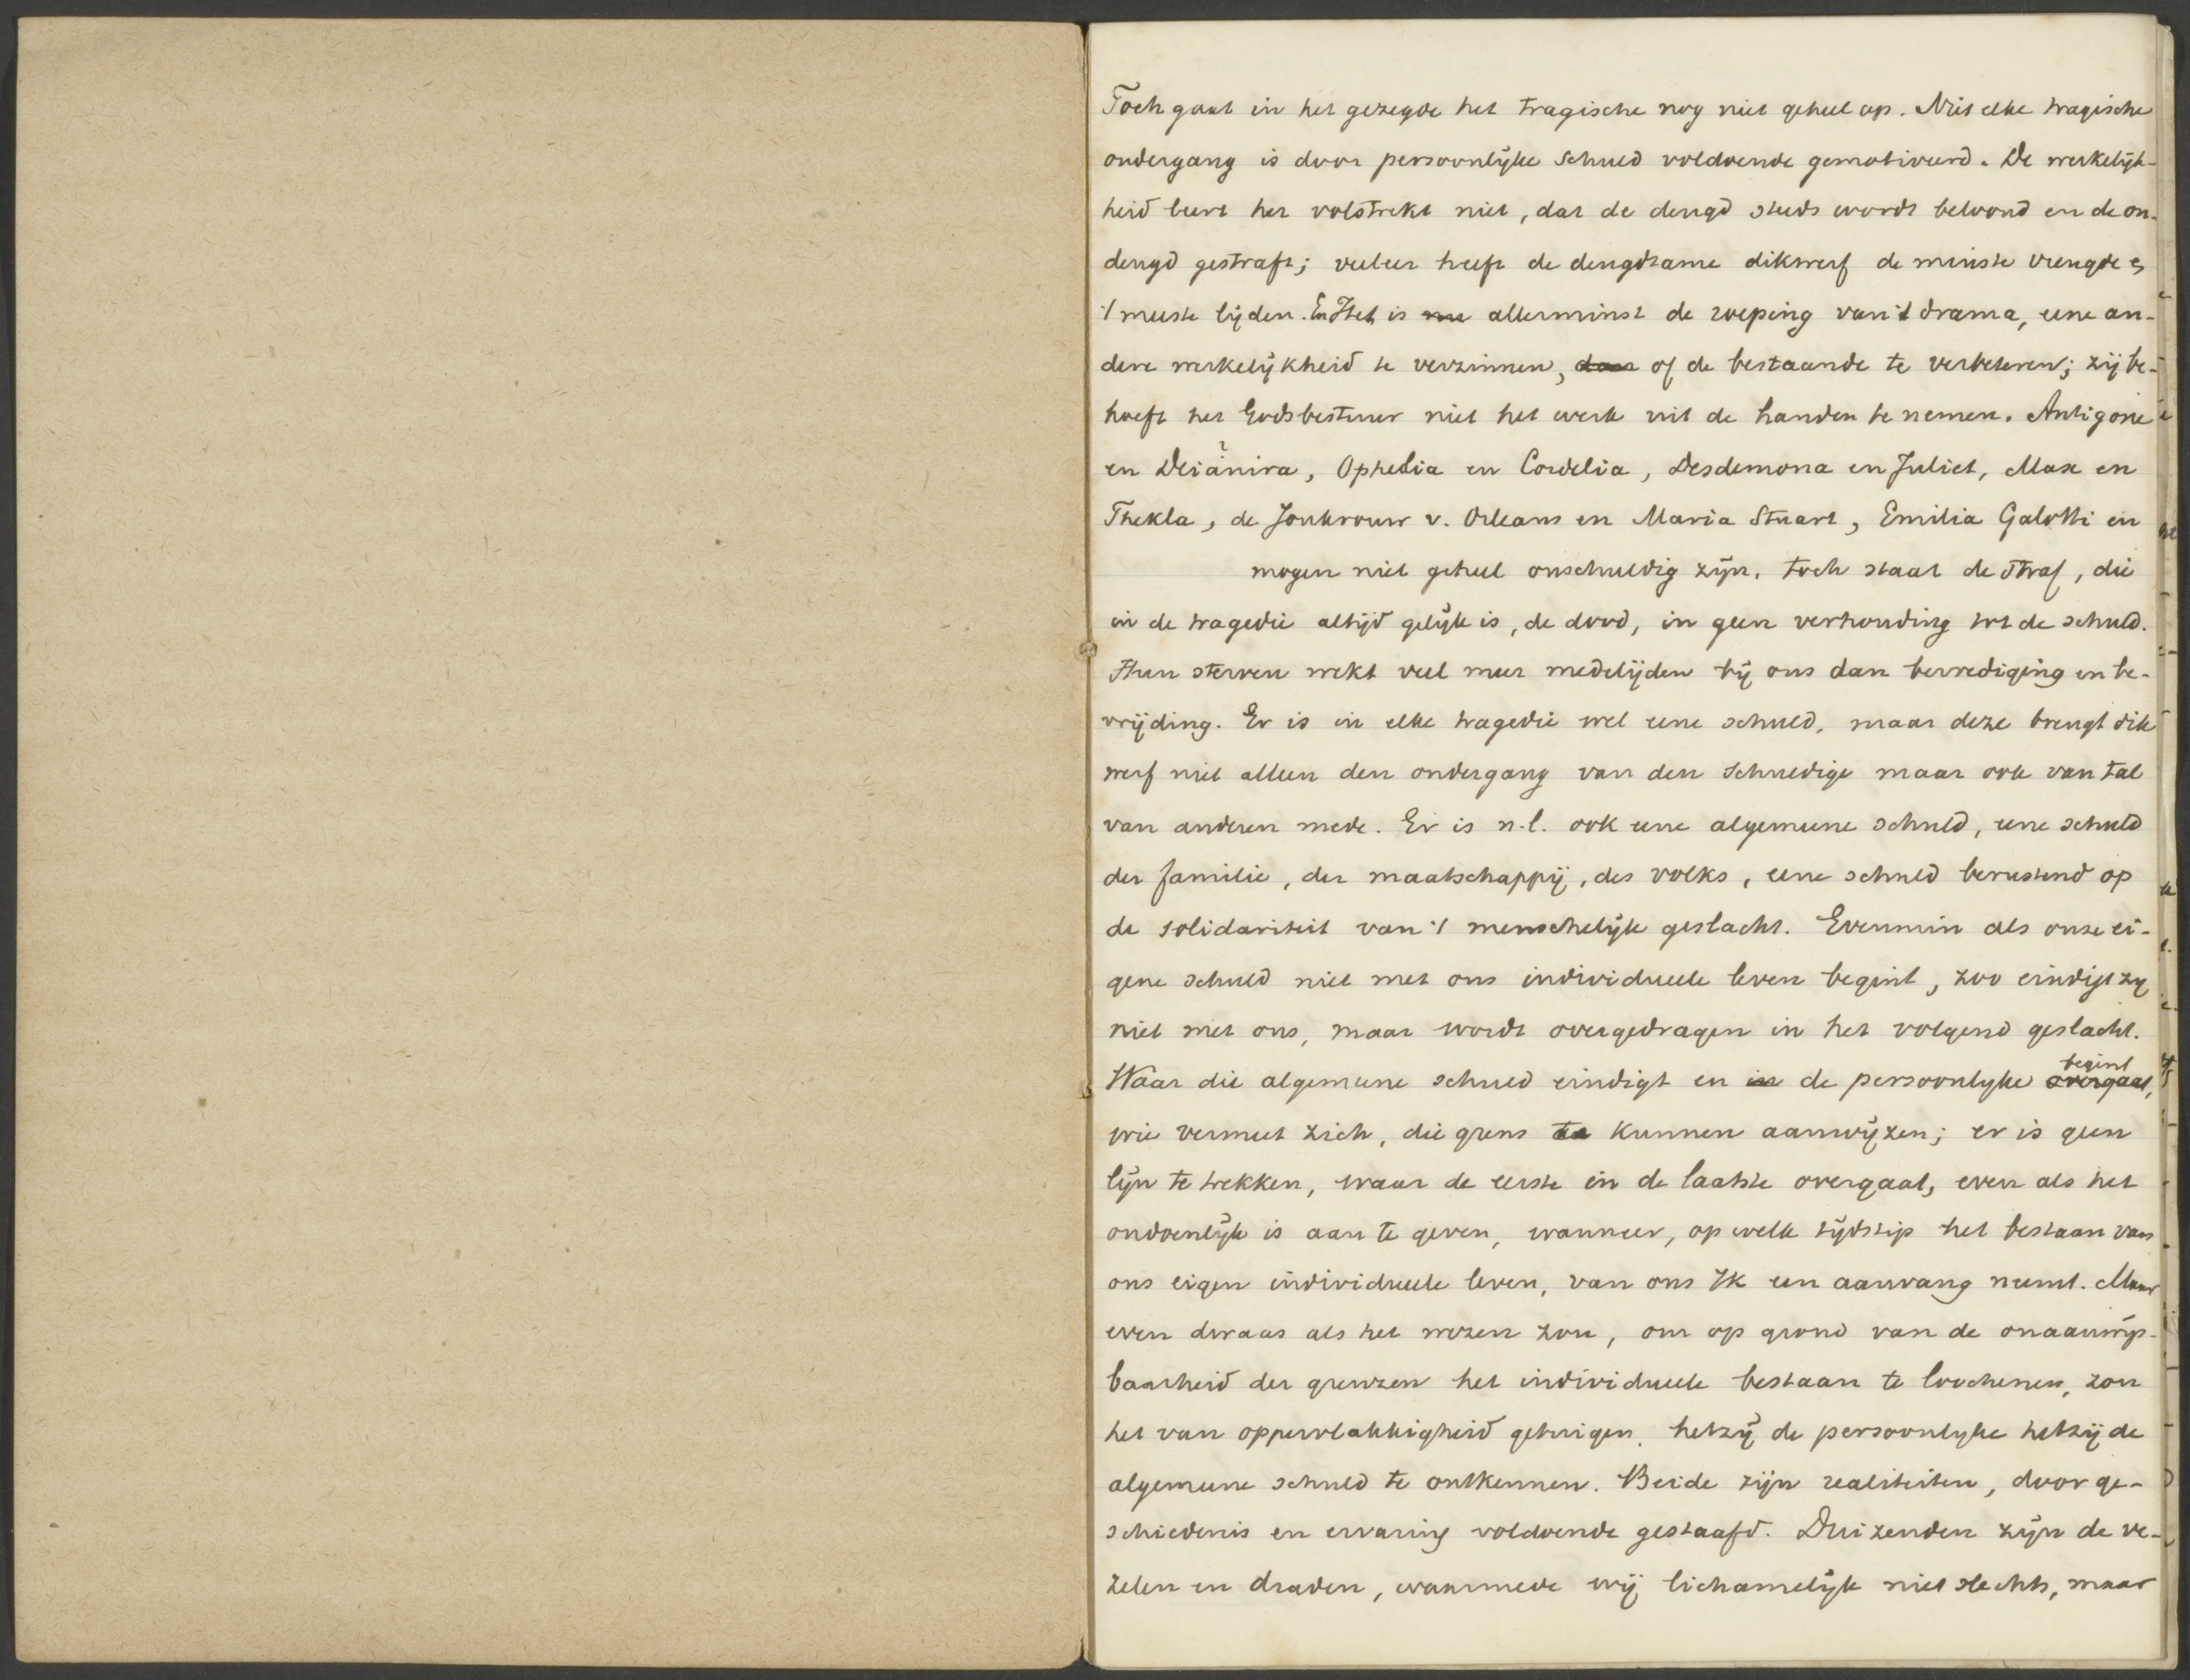 Toch gaat in het gezegde het tragische nog niet geheel op. Niet elke tragische
ondergang is door persoonlijke schuld voldoende gemotiveerd. De werkelijk-
heid leert het volstrekt niet, dat de deugd steeds wordt beloond en de on-
deugd gestraft; veeleer heeft de deugdzame dikwerf de minste vreugde en
't meeste lijden. En Het is allerminst de roeping van 't drama, eene an-
dere werkelijkheid te verzinnen, of de bestaande te verbeteren; zij be-
hoeft het Godsbestuur niet het werk uit de handen te nemen. Antigone
en Deianira, Ophelia en Cordelia, Desdemona en Juliet, Max en
Thekla, de Jonkvrouw v. Orleans en Maria Stuart, Emilia Galotti en
mogen niet geheel onschuldig zijn, toch staat de straf, die
in de tragedie altijd gelijk is, de dood, in geen verhouding tot de schuld.
Hun sterven wekt veel meer medelijden bij ons dan bevrediging en be-
vrijding. Er is in elke tragedie wel eene schuld, maar deze brengt dik
werf niet alleen den ondergang van den schuldige maar ook van tal
van anderen mede. Er is n.l. ook eene algemeene schuld, eene schuld
der familie, der maatschappij, des volks, eene schuld berustend op
de solidariteit van 't menschelijk geslacht. Evenmin als onze ei-
gene schuld niet met ons individueele leven begint, zoo eindigt zij
niet met ons, maar wordt overgedragen in het volgend geslacht.
Waar die algemeene schuld eindigt en in de persoonlijke overgaat, begint
wie vermeet zich, die grens te kunnen aanwijzen; er is geen
lijn te trekken, waar de eerste in de laatste overgaat, even als het
ondoenlijk is aan te geven, wanneer, op welk tijdstip het bestaan van
ons eigen individueele leven, van ons Ik een aanvang neemt. Maar
even dwaas als het wezen zou, om op grond van de onaanwijs-
baarheid der grenzen het individueele bestaan te loochenen, zou
het van oppervlakkigheid getuigen, hetzij de persoonlijke hetzij de
algemeene schuld te ontkennen. Beide zijn realiteiten, door ge-
schiedenis en ervaring voldoende gestaafd. Duizenden zijn de ve-
zelen en draden, waarmede wij lichamelijk niet slechts, maar